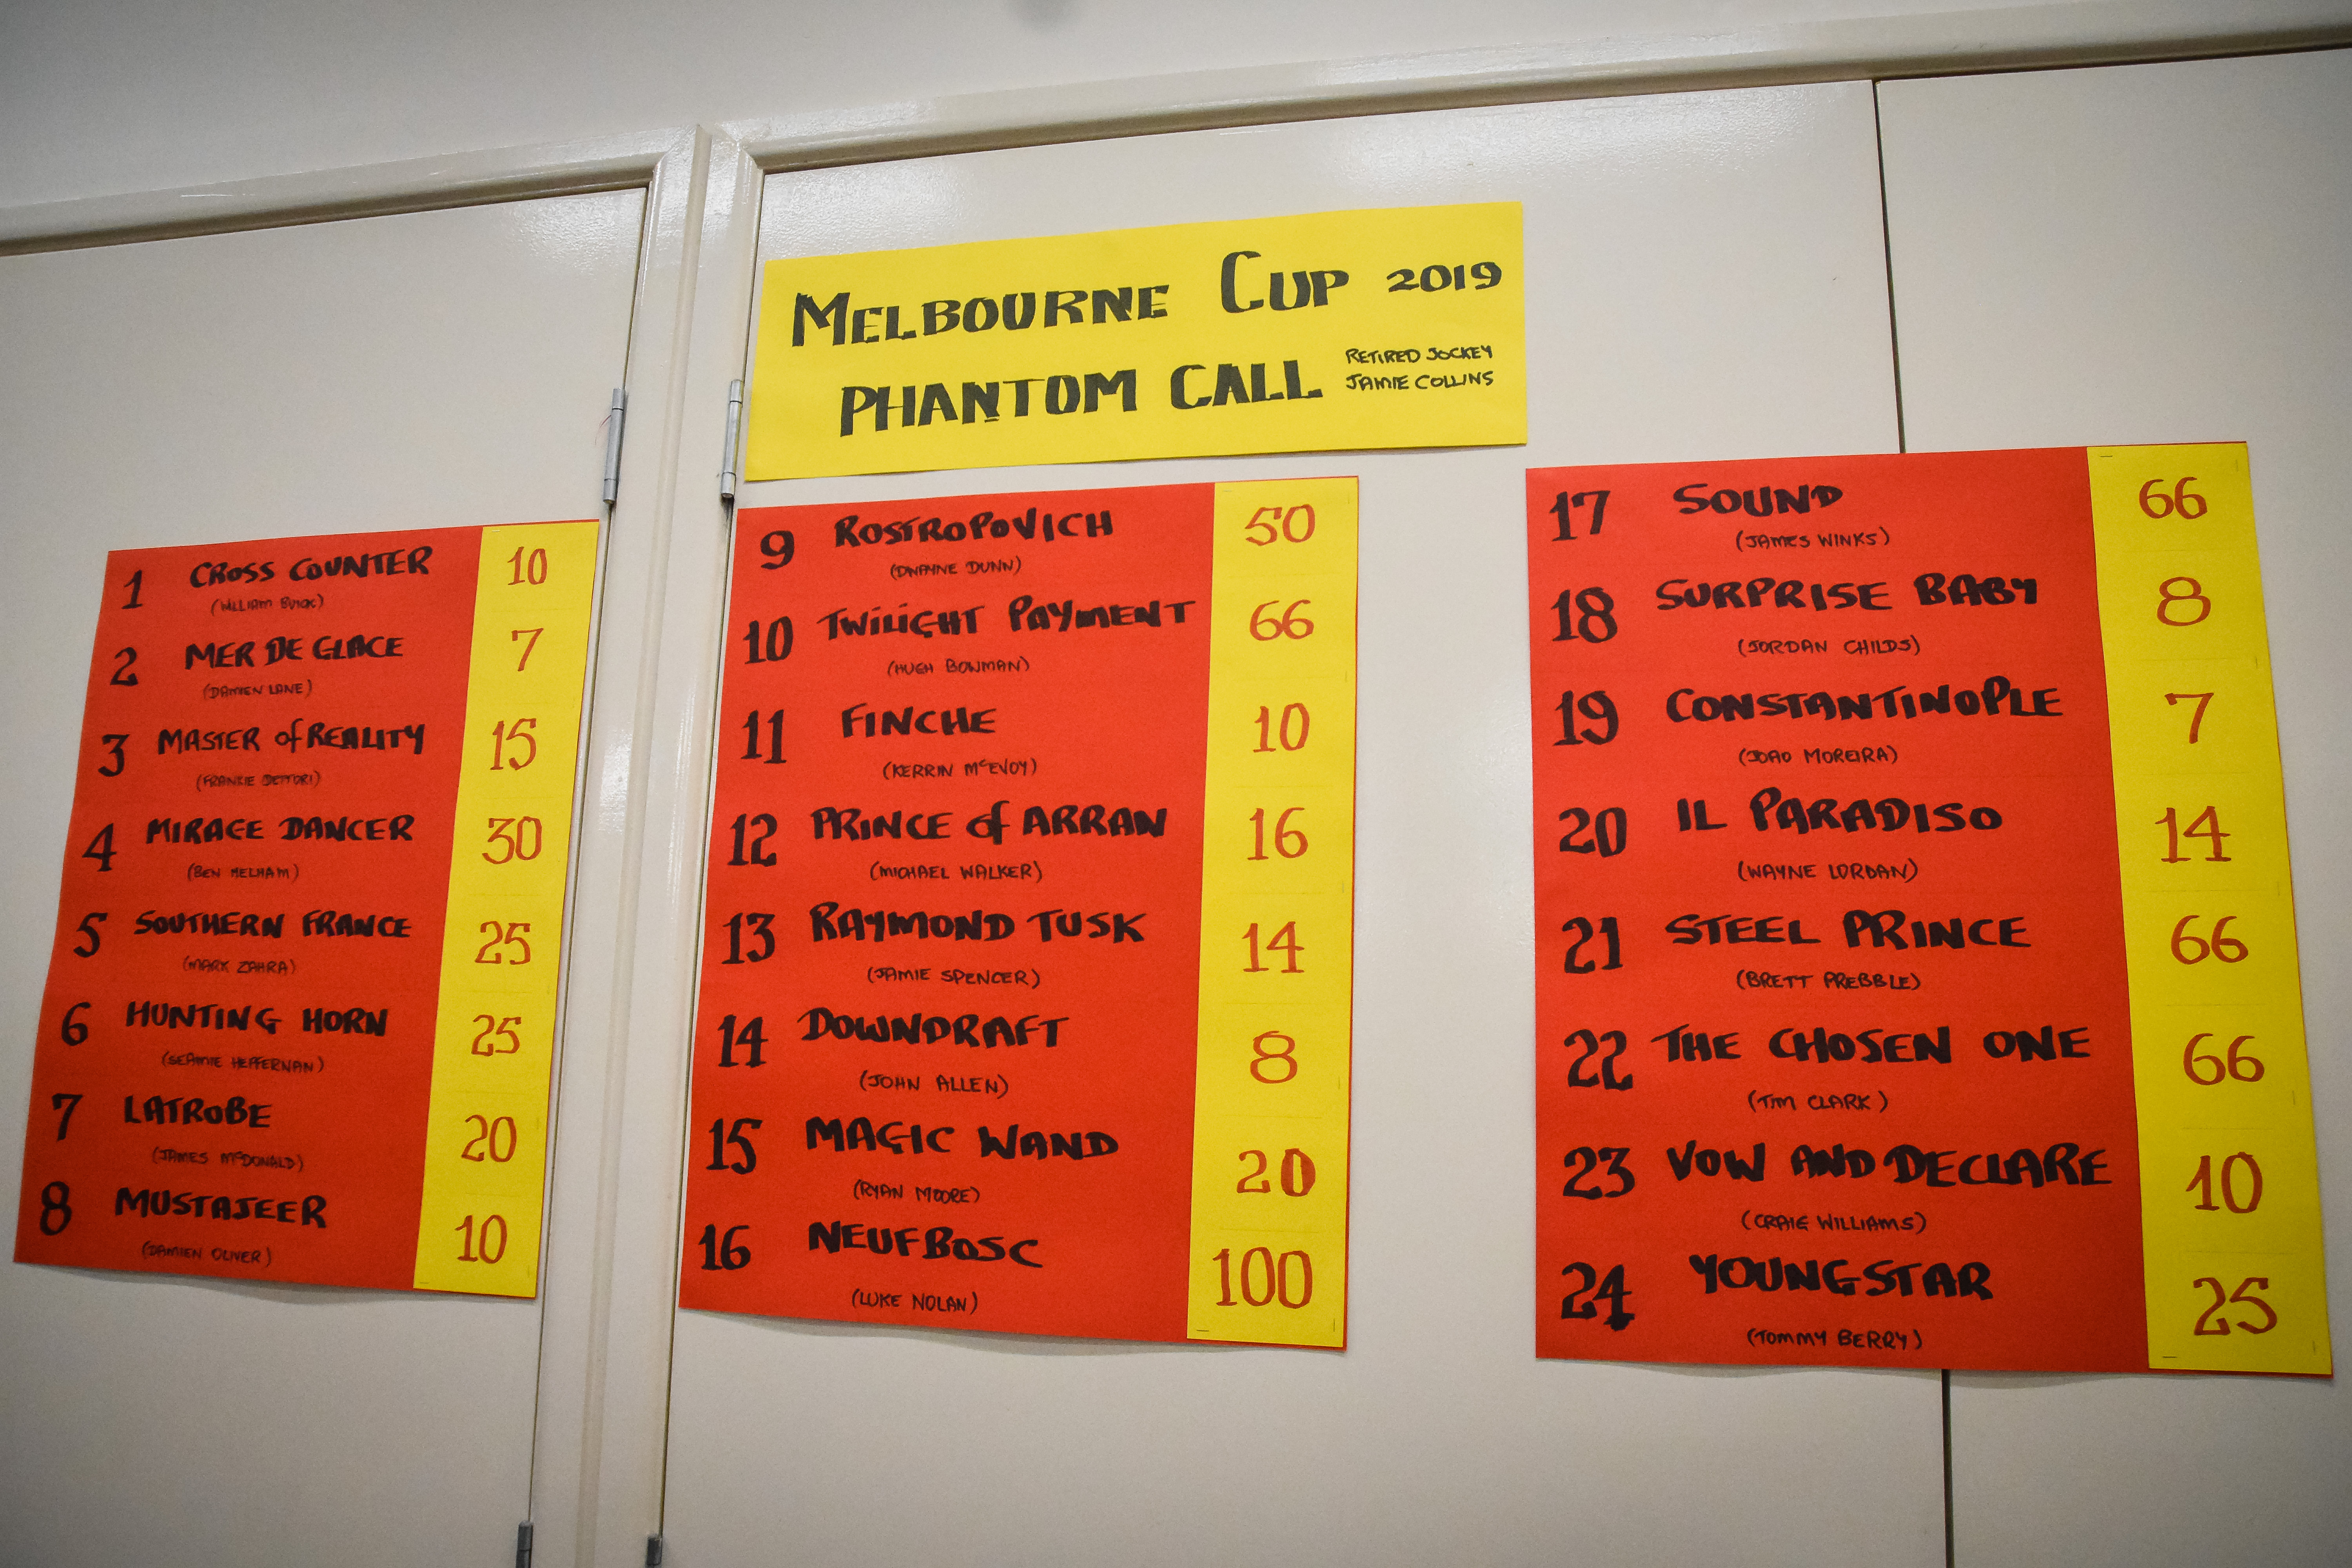 MELBOURNE CUP 2019
PHANTOM CALL RETIRED JOCKEY
JAMIE COLLINS
1 CROSS COUNTER 10
(WILLIAM BUICK)
2 MER DE GLACE 7
(DAMIEN LANE)
3 MASTER of REALITY 15
(FRANKIE DETTORI)
4 MIRAGE DANCER 30
(BEN MELHAM)
5 SOUTHERN FRANCE 25
(MARK ZAHRA)
6 HUNTING HORN 25
(SEAMIE HEFFERNAN)
7 LATROBE 20
(JAMES McDONALD)
8 MUSTAJEER 10
(DAMIEN OLIVER)
9 ROSTROPOVICH 50
(DWAYNE DUNN)
10 TWILIGHT PAYMENT 66
(HUGH BOWMAN)
11 FINCHE 10
(KERRIN McEVOY)
12 PRINCE of ARRAN 16
(MICHAEL WALKER)
13 RAYMOND TUSK 14
(JAMIE SPENCER)
14 DOWNDRAFT 8
(JOHN ALLEN)
15 MAGIC WAND 20
(RYAN MOORE)
16 NEUFBOSC 100
(LUKE NOLAN)
17 SOUND 66
(JAMES WINKS)
18 SURPRISE BABY 8
(JORDAN CHILDS)
19 CONSTANTINOPLE 7
(JOAO MOREIRA)
20 IL PARADISO 14
(WAYNE LORDAN)
21 STEEL PRINCE 66
(BRETT PREBBLE)
22 THE CHOSEN ONE 66
(TIM CLARK)
23 VOW AND DECLARE 10
(CRAIG WILLIAMS)
24 YOUNGSTAR 25
(TOMMY BERRY)